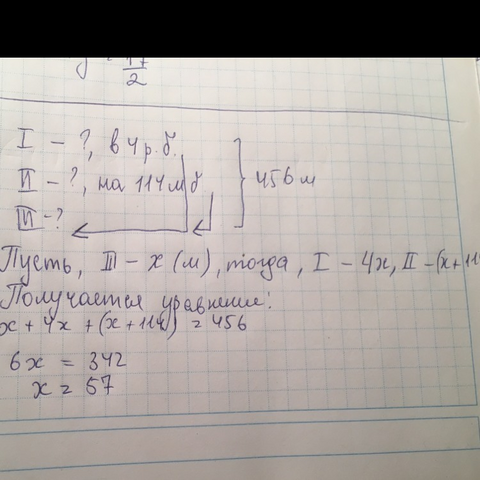 y = 17/2
I - ?, в 4 р. б.
II - ?, на 114 м б
III - ?
456 м
Пусть, III - x (м), тогда, I - 4x, II - (x+114
Получается уравнение:
x + 4x + (x + 114) = 456
6x = 342
x = 67